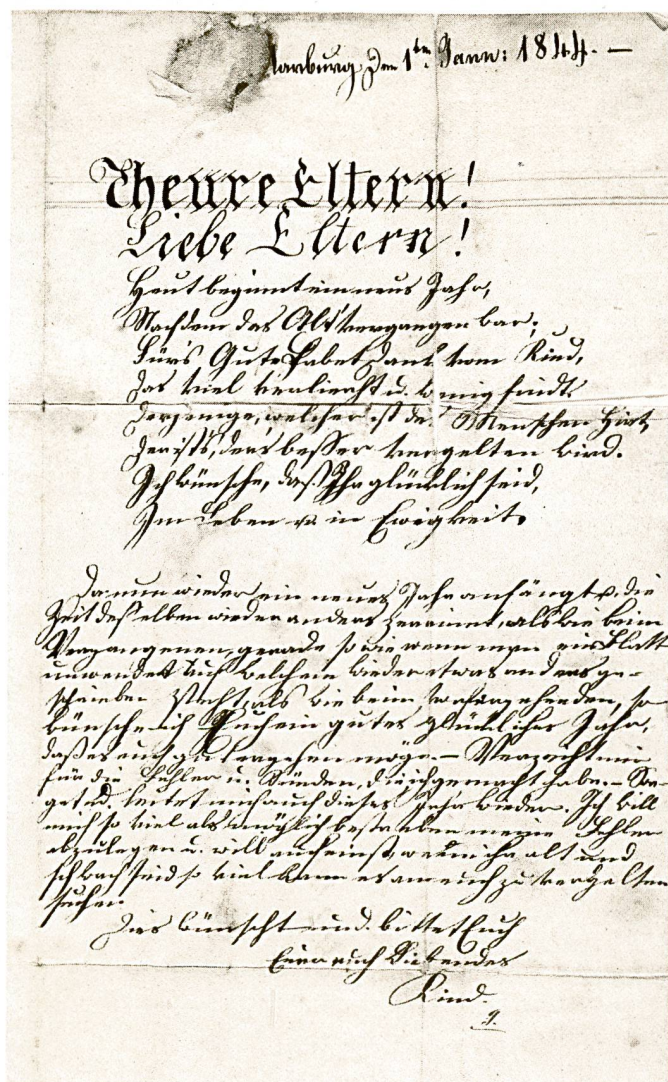 arburg Den 1ten Jann: 1844. —
Theure Eltern!
Liebe Eltern!
Heut beginnt ein neues Jahr,
Nachdem das Alt' vergangen war;
Für's Gute habet Dank vom Kind,
Das viel u. wenig findt.
Derjenige, welcher ist der Menschen Hirt,
Der ist's, der's besser vergelten wird.
Ich wünsche, daß Ihr glücklich seid,
Im Leben u. in Ewigkeit.
Da nun wieder ein neues Jahr anfängt u. die
Zeit desselben wieder anders zerrinnt, als wie beim
Vergangenen, gerade so wie wenn man ein Blatt
umwendet auf welchem wieder etwas anders ge-
schrieben steht, als wie beim vorhergehenden, so
wünsche ich Euch ein gutes glückliches Jahr,
daß es euch gut ergehen möge. — Verzeiht mir
für die Fehler u. Sünden, die ich gemacht habe.
leitet mich auch dieses Jahr wieder. Ich will
mich so viel als möglich bestreben meine Fehler
abzulegen u. will auch einst, wenn ihr alt und
schwach seid so viel kann es an euch zu vergelten
suchen.
Dies wünscht und bittet Euch
Euer euch Liebendes
Kind.